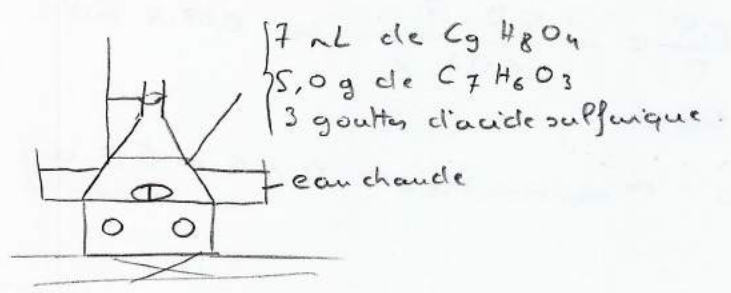 7 mL de C9 H8O4
5,0 g de C7 H6 O3
3 gouttes d'acide sulfurique.
eau chaude